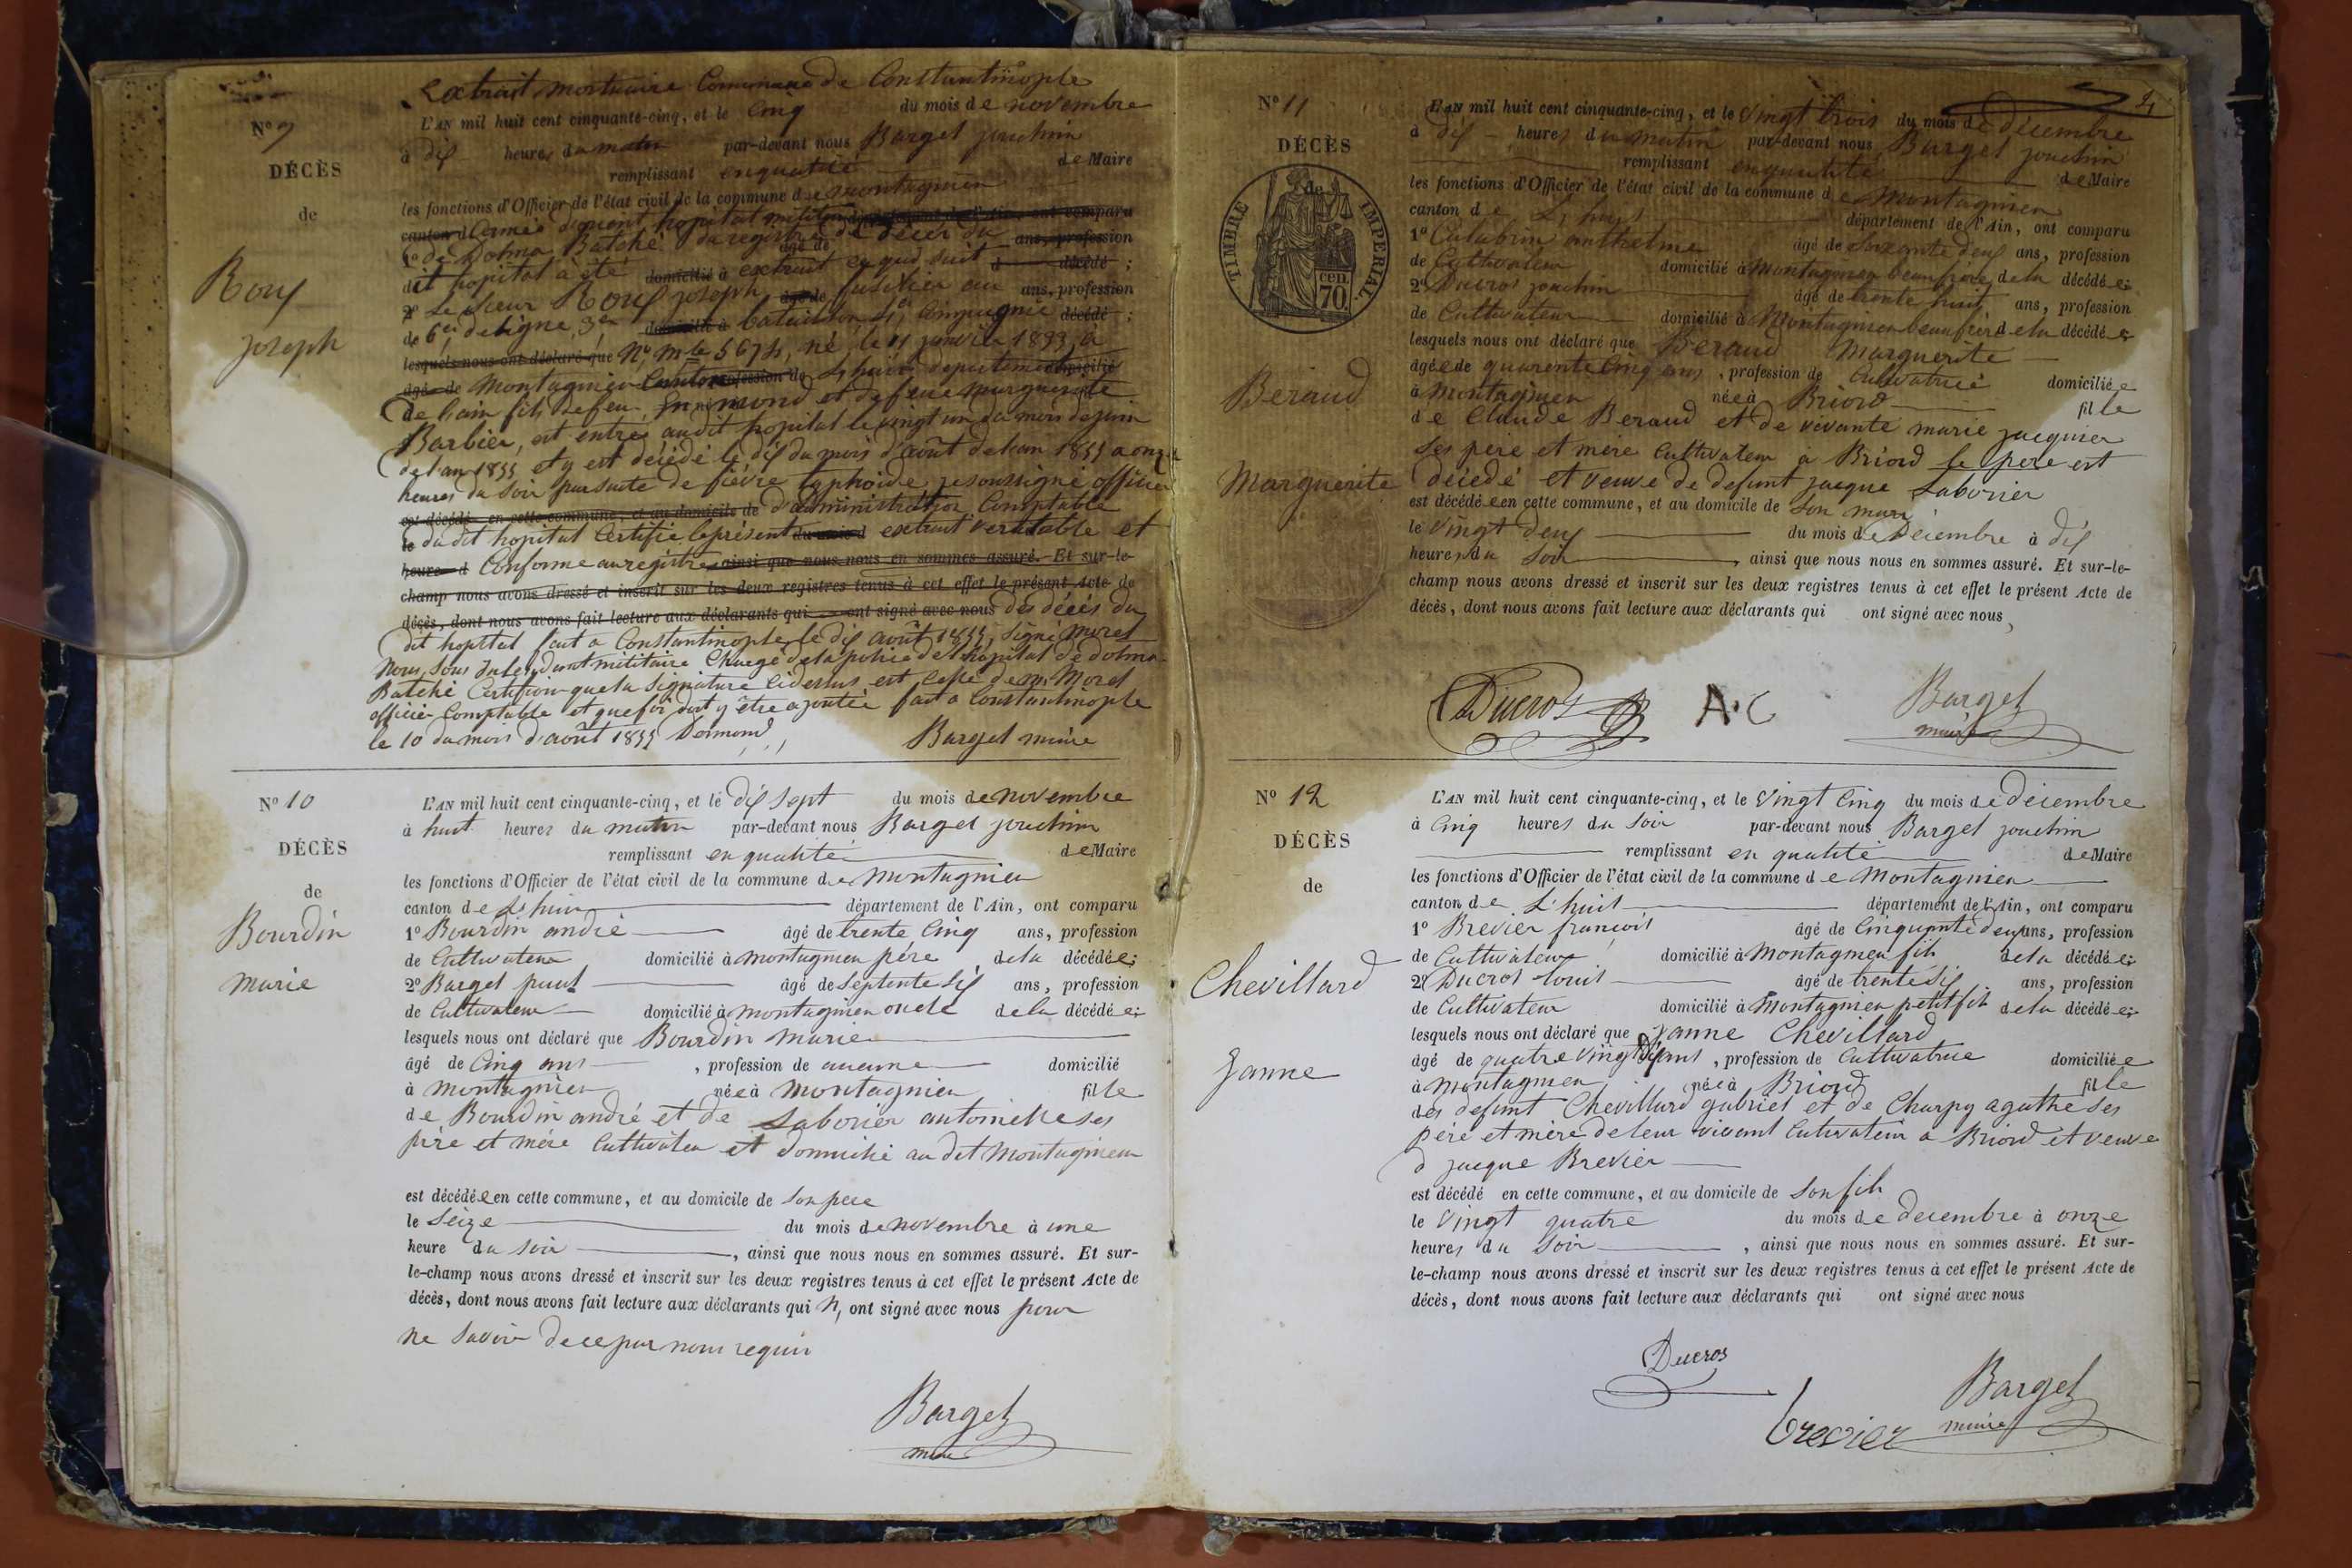 Extrait mortuaire Commune de Constantinople
N° 9
DÉCÈS
de
Roux
joseph
L'AN mil huit cent cinquante-cinq, et le Cinq du mois de novembre
à dix heures du matin par-devant nous Barget jouchin
remplissant en qualité de Maire
les fonctions d'Officier de l'état civil de la commune de montagnieu
canton d armée d'orient hopital militaire département de l'Ain, ont comparu
1° de Dolma Batché du registre âgé de de décès du ans, profession
dit hopital a été domicilié à extrait ce qui suit d décédé ;
2° Le sieur Roux joseph âgé de fusilier au ans, profession
de 6e de ligne, 3e domicilié à bataillon 4e Compagnie décédé ;
lesquels nous ont déclaré que N° mle 5674, né le 11 janvier 1833 à
âgé de montagnieu Canton profession de Lhuis departement domicilié
de l'ain fils de feu et de feue marguerite
Barbier, est entré audit hopital le vingt un du mois de juin
de l'an 1855 et y est décédé le dix du mois d'août de l'an 1855 a onze
heures du soir par suite de fièvre typhoïde je soussigné officier
est décédé en cette commune, et au domicile de d'administration Comptable
le du dit hopital Certifie le présent du mois d extrait veritable et
heure d Conforme au régistre ainsi que nous nous en sommes assuré. Et sur-le-
champ nous avons dressé et inscrit sur les deux registres tenus à cet effet le présent Acte de
décès, dont nous avons fait lecture aux déclarants qui ont signé avec nous des décès du
dit hopital fait a Constantinople le dix août 1855, signé morel
Nous, sous intendant militaire Chargé de la police de l'hopital de dolma
Batché Certifions que la signature cidessus est celle de m. Morel
officier Comptable et que foi doit y être ajoutée fait a Constantinople
le 10 du mois d'août 1855 Dormond
Barget maire
N° 10
DÉCÈS
de
Bourdin
marie
L'AN mil huit cent cinquante-cinq, et le dix sept du mois de novembre
à huit heures du matin par-devant nous Barget jouchin
remplissant en qualité de Maire
les fonctions d'Officier de l'état civil de la commune de montagnieu
canton de Lhuis département de l'Ain, ont comparu
1° Bourdin andré âgé de trente Cinq ans, profession
de Cultivateur domicilié à montagnieu père de la décédée ;
2° Barget paul âgé de septente six ans, profession
de Cultivateur domicilié à montagnieu oncle de la décédée ;
lesquels nous ont déclaré que Bourdin marie
âgé de Cinq ans, profession de aucune domicilié
à montagnieu née à montagnieu fille
de Bourdin andré et de Laborier antoinette ses
père et mére Cultivateu et domicilié au dit Montagnieu
est décédée en cette commune, et au domicile de son pere
le Seize du mois de novembre à une
heure du soir, ainsi que nous nous en sommes assuré. Et sur-
le-champ nous avons dressé et inscrit sur les deux registres tenus à cet effet le présent Acte de
décès, dont nous avons fait lecture aux déclarants qui n, ont signé avec nous pour
ne savoir de ce par nous requis
Barget
maire
4
N° 11
DÉCÈS
de
TIMBRE IMPERIAL
70 cen.
Beraud
Marguerite
L'AN mil huit cent cinquante-cinq, et le vingt trois du mois de décembre
à dix heures du matin par-devant nous Barget jouchin
remplissant en qualité de Maire
les fonctions d'Officier de l'état civil de la commune de montagnieu
canton de Lhuis département de l'Ain, ont comparu
1° Calabrin anthelme âgé de soixante deux ans, profession
de Cultivateur domicilié à Montagnieu beaufrère de la décédée ;
2° Ducros jouchin âgé de trente huit ans, profession
de Cultivateur domicilié à Montagnieu beaufrèr de la décédée ;
lesquels nous ont déclaré que Beraud Marguerite
âgée de quarente Cinq ans, profession de Cultivatrice domiciliée
à montagnieu née à Briord fille
de Claude Beraud et de vivante marie jacquier
ses pére et mére Cultivateur a Briord le pere est
décédé et veuve de defunt jacque Laborier
est décédée en cette commune, et au domicile de son mari
le vingt deux du mois de Décembre à dix
heures du soir, ainsi que nous nous en sommes assuré. Et sur-le-
champ nous avons dressé et inscrit sur les deux registres tenus à cet effet le présent Acte de
décès, dont nous avons fait lecture aux déclarants qui ont signé avec nous,
Ducros
A. C
Barget
maire
N° 12
DÉCÈS
de
Chevillard
Janne
L'AN mil huit cent cinquante-cinq, et le vingt Cinq du mois de décembre
à Cinq heures du soir par-devant nous Barget jouchin
remplissant en qualité de Maire
les fonctions d'Officier de l'état civil de la commune de montagnieu
canton de L'huis département de l'Ain, ont comparu
1° Brevier françois âgé de Cinquante deux ans, profession
de Cultivateur domicilié à Montagnieu fils de la décédée ;
2° Ducros louis âgé de trente six ans, profession
de Cultivateur domicilié à Montagnieu petit fils de la décédée ;
lesquels nous ont déclaré que janne Chevillard
âgé de quatre vingt ans, profession de Cultivatrice domiciliée
à montagnieu née à Briord fille
des defunt Chevillard gabriel et de Charpy agathe ses
pére et mère de leur vivant Cutivateur a Briord et veuve
d jacque Brevier
est décédé en cette commune, et au domicile de son fils
le vingt quatre du mois de decembre à onze
heures du soir, ainsi que nous nous en sommes assuré. Et sur-
le-champ nous avons dressé et inscrit sur les deux registres tenus à cet effet le présent Acte de
décès, dont nous avons fait lecture aux déclarants qui ont signé avec nous
Ducros
Barget
brevier maire